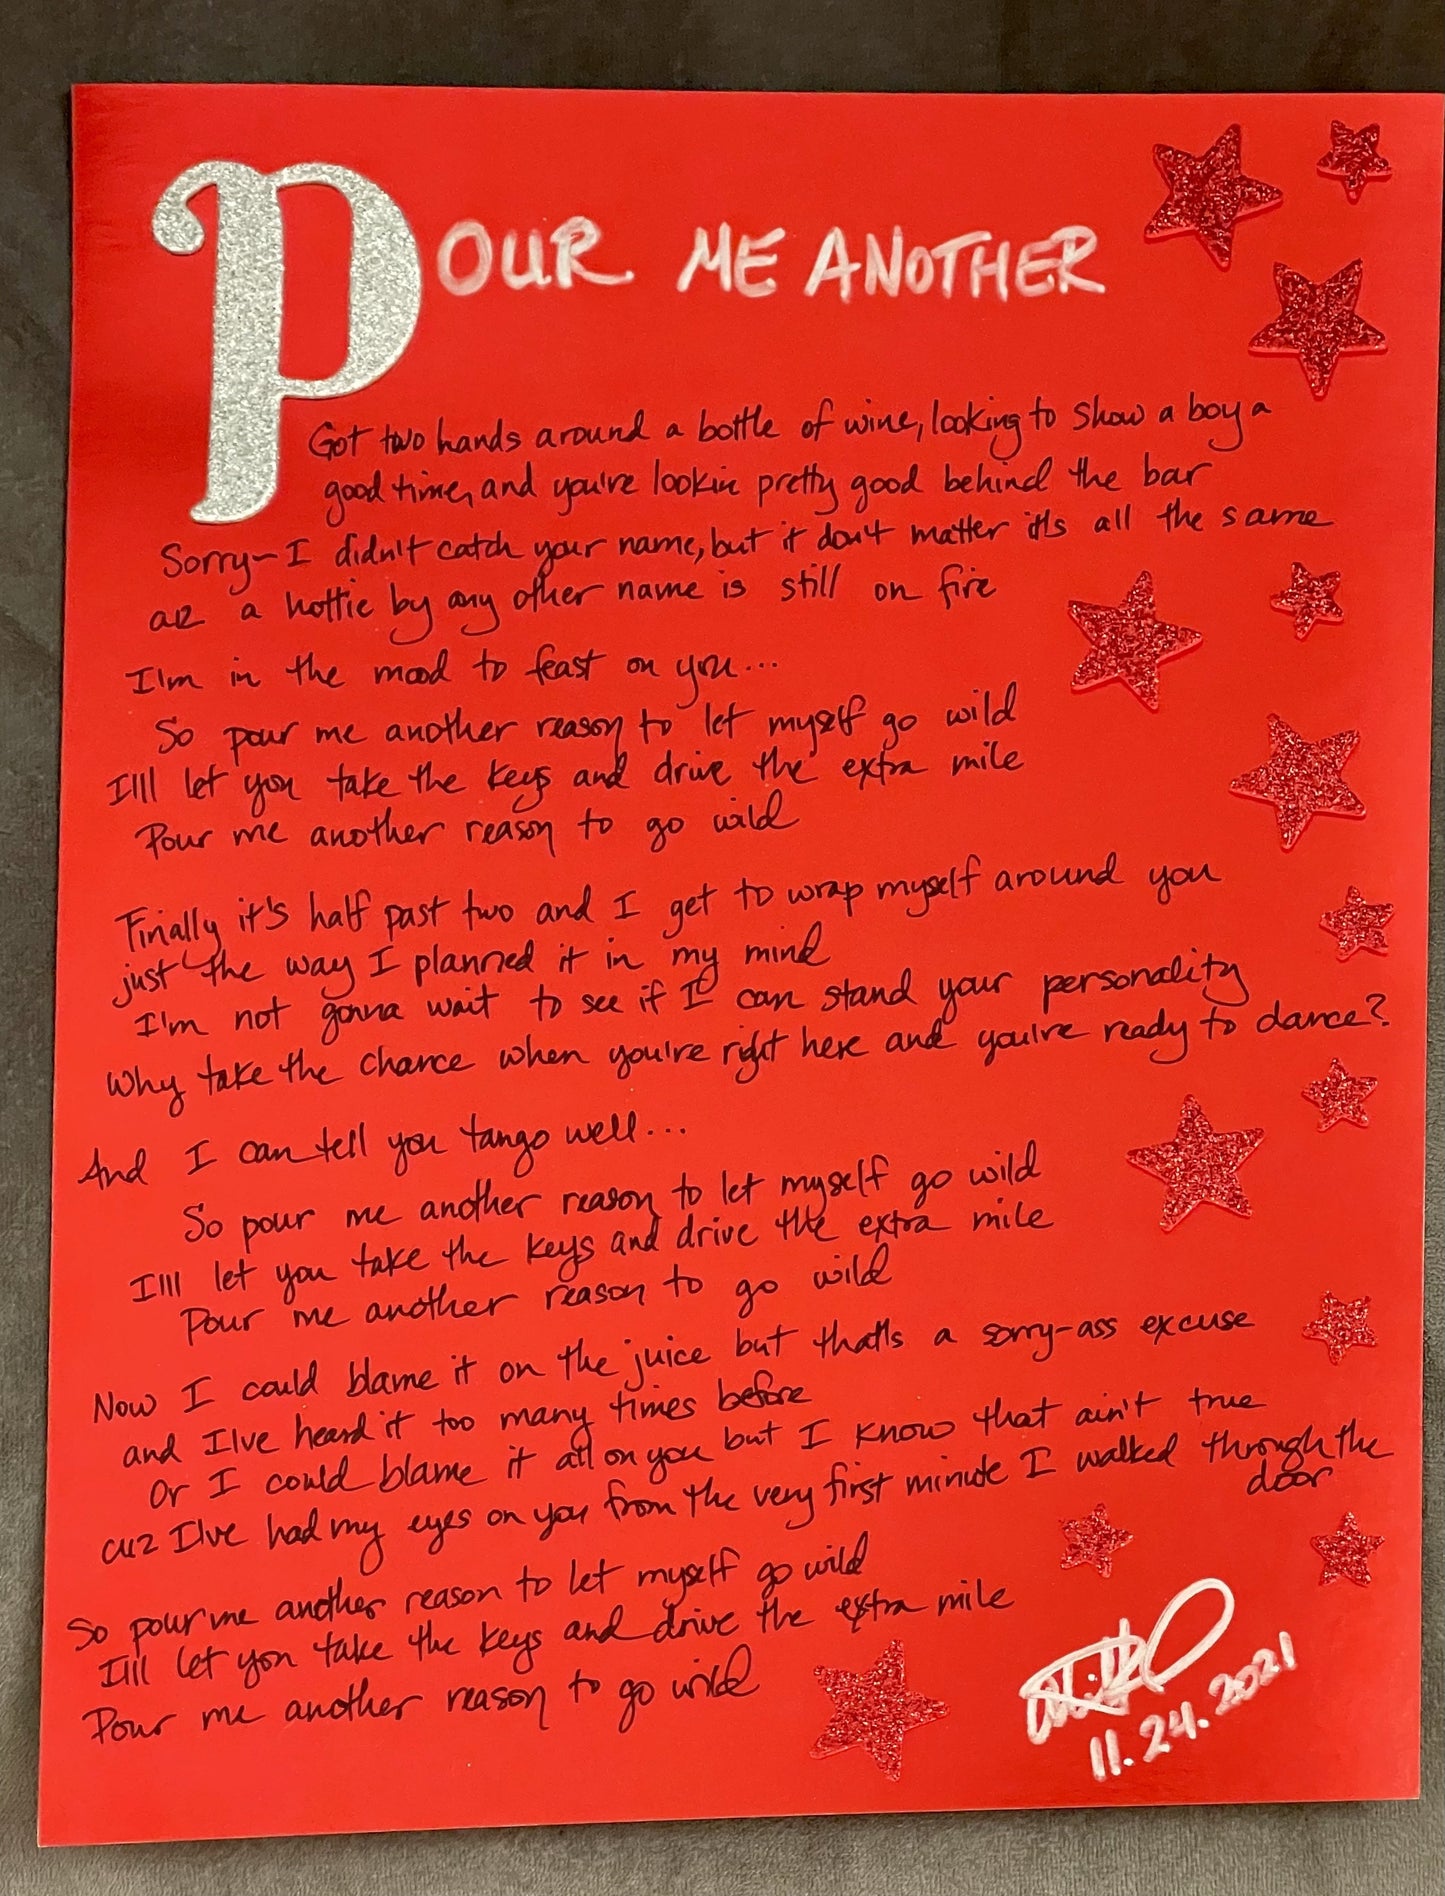 POUR ME ANOTHER
Got two hands around a bottle of wine, looking to show a boy a
good time, and you're lookin pretty good behind the bar
Sorry - I didn't catch your name, but it don't matter it's all the same
cuz a hottie by any other name is still on fire
I'm in the mood to feast on you...
So pour me another reason to let myself go wild
I'll let you take the keys and drive the extra mile
Pour me another reason to go wild
Finally it's half past two and I get to wrap myself around you
just the way I planned it in my mind
I'm not gonna wait to see if I can stand your personality
Why take the chance when you're right here and you're ready to dance?
And I can tell you tango well...
So pour me another reason to let myself go wild
I'll let you take the keys and drive the extra mile
Pour me another reason to go wild
Now I could blame it on the juice but that's a sorry-ass excuse
and I've heard it too many times before
Or I could blame it all on you but I know that ain't true
cuz I've had my eyes on you from the very first minute I walked through the
door
So pour me another reason to let myself go wild
I'll let you take the keys and drive the extra mile
Pour me another reason to go wild
11.24.2021